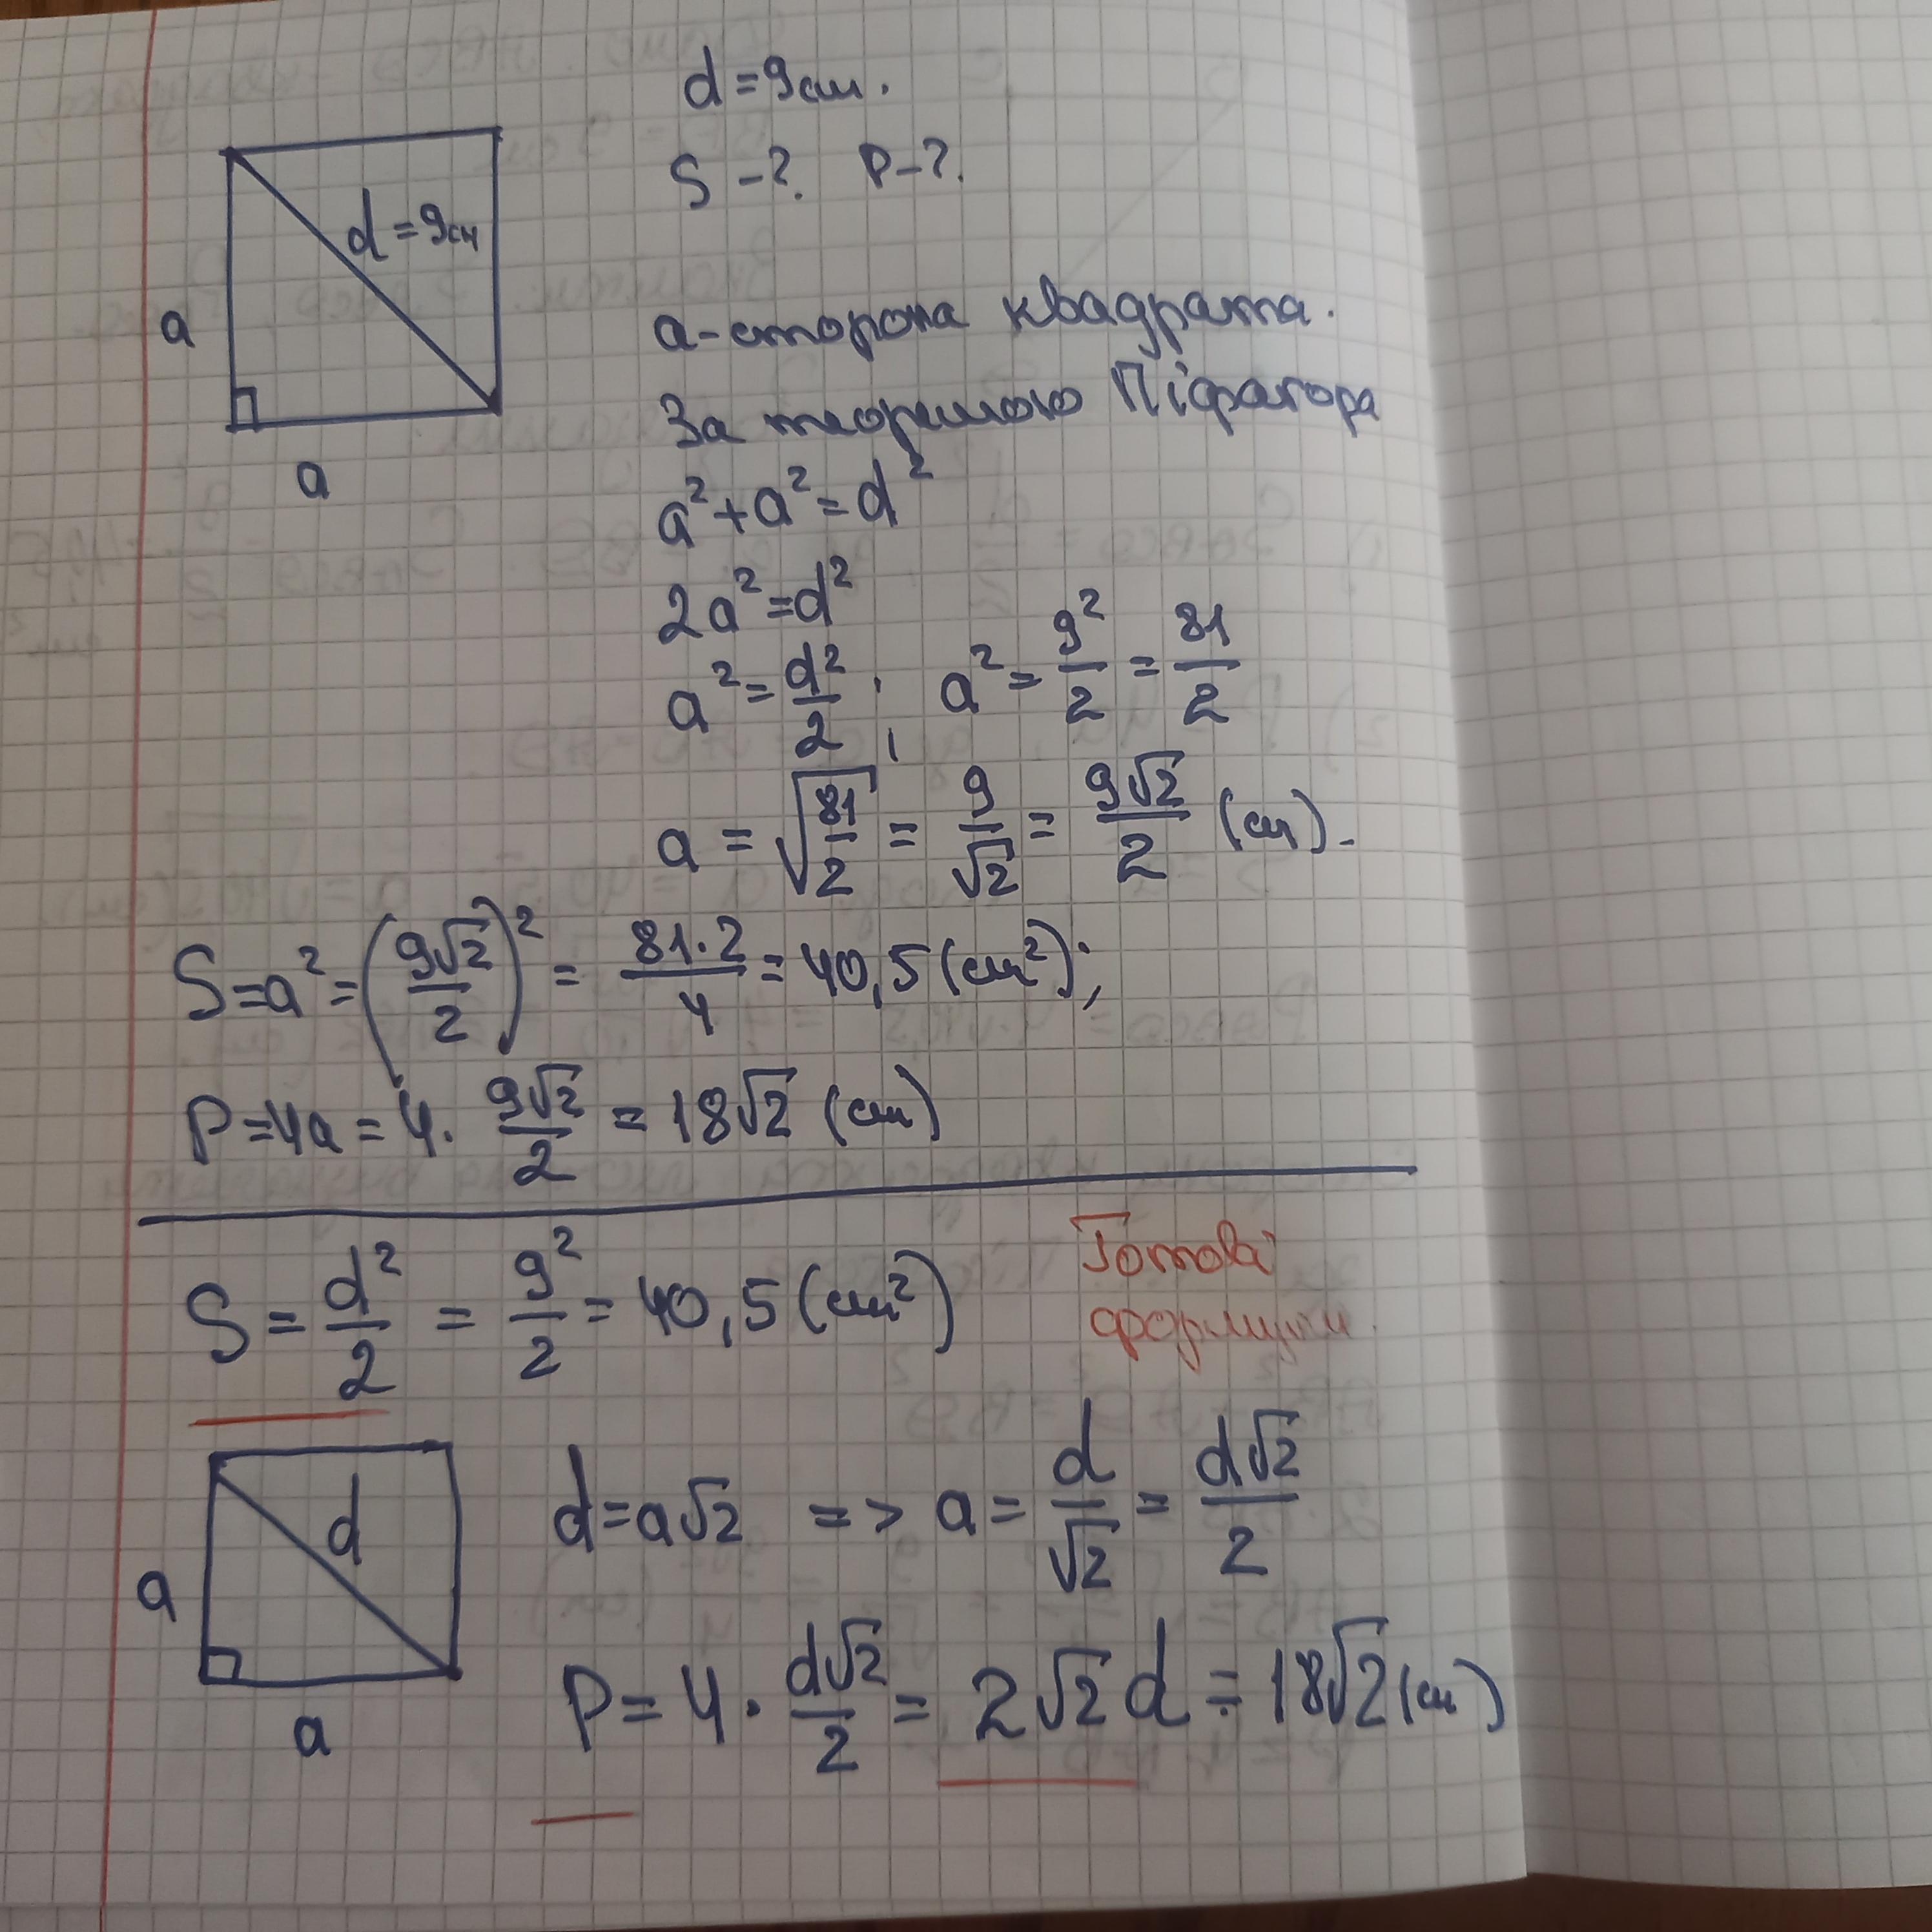 d = 9см.
S - ?. P - ?.
d = 9см
a
a
a - сторона квадрата.
За теоремою Піфагора
a² + a² = d²
2a² = d²
a² = d²/2 ; a² = 9²/2 = 81/2
a = √(81/2) = 9/√2 = 9√2/2 (см).
S = a² = (9√2/2)² = 81·2/4 = 40,5 (см²);
P = 4a = 4 · 9√2/2 = 18√2 (см)
S = d²/2 = 9²/2 = 40,5 (см²)
Готові
формули.
d
a
a
d = a√2 => a = d/√2 = d√2/2
P = 4 · d√2/2 = 2√2 d = 18√2 (см)